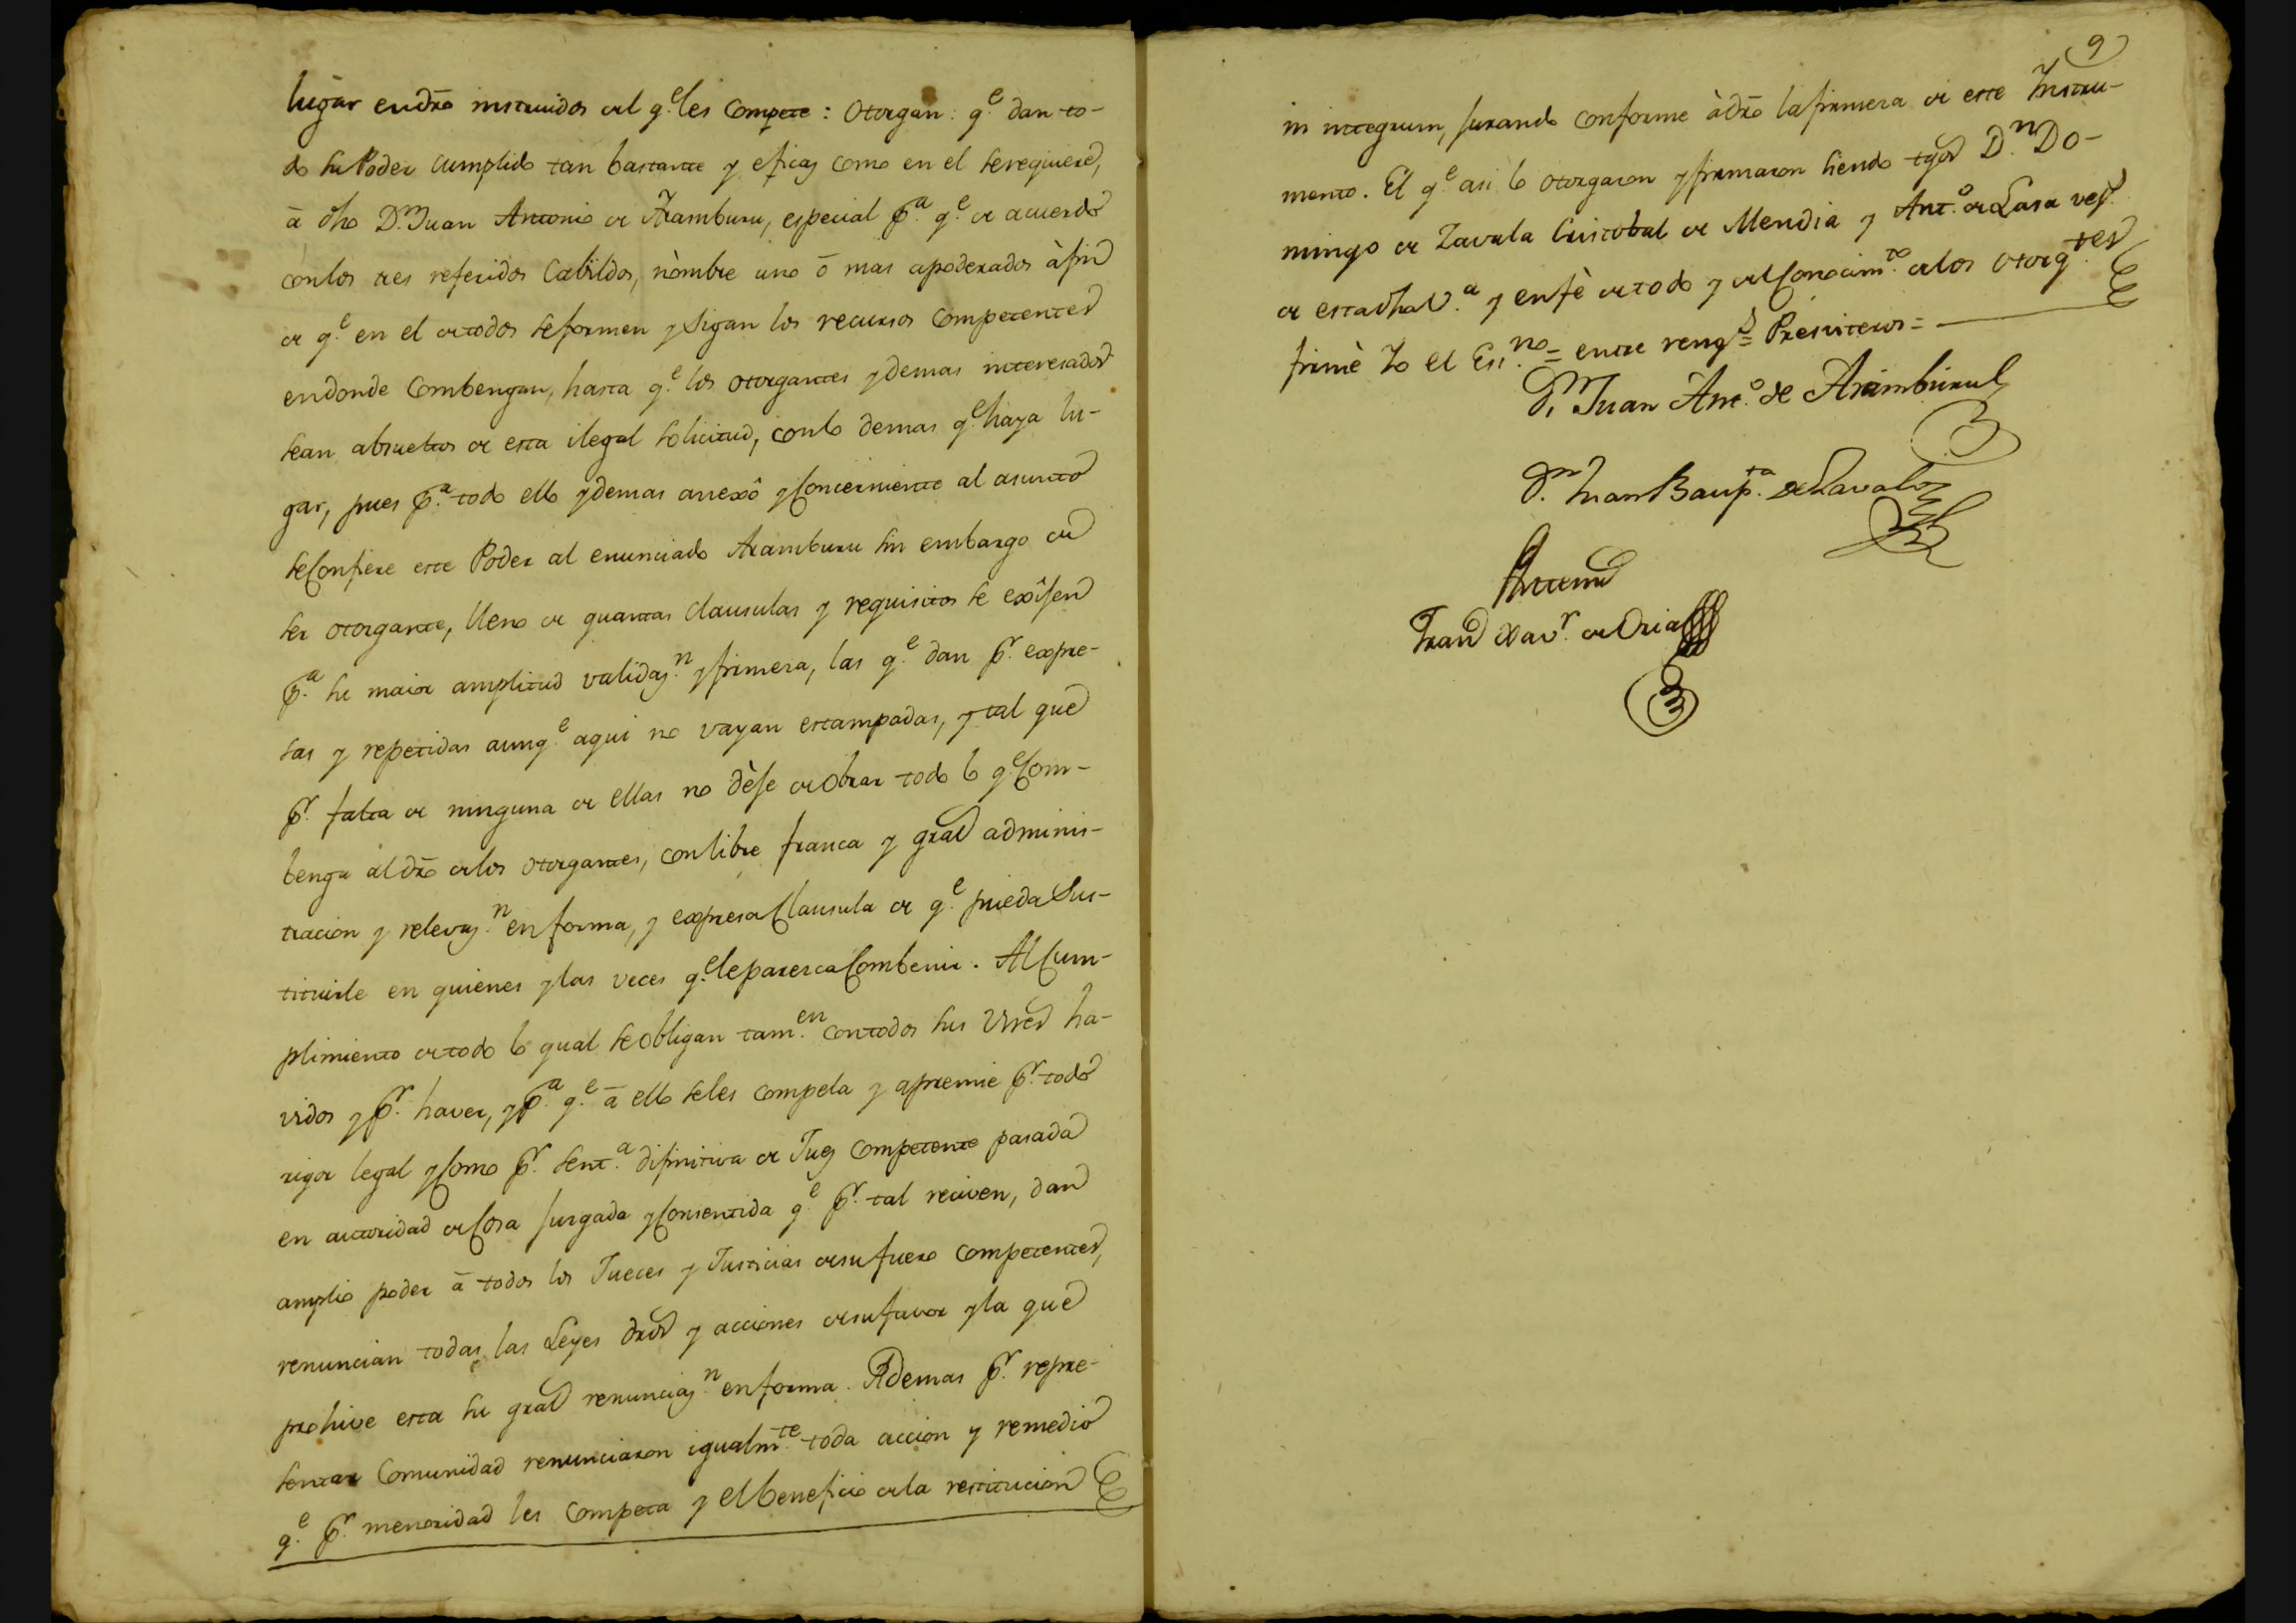 lugar en dro instruidos del q.e les Compete: Otorgan: q.e dan to-
do su Poder cumplido tan bastante y eficaz como en el se requiere,
à dho D.n Juan Antonio de Aramburu, especial p.a q.e de acuerdo
con los tres referidos Cabildos, nòmbre uno ò mas apoderados àfin
de q.e en el de todos se formen y sigan los recursos Competentes
en donde Combengan, hasta q.e los otorgantes y demas interesados
sean absueltos de esta ilegal solicitud, con lo demas q.e haya lu-
gar, pues p.a todo ello y demas anexò y Concerniente al asunto
se Confiere este Poder al enunciado Aramburu sin embargo de
ser otorgante, lleno de quantas clausulas y requisitos se exîjen
p.a su maior amplitud validaz.n y firmera, las q.e dan p.r expre-
sas y repetidas aunq.e aqui no vayan estampadas, y tal que
p.r falta de ninguna de ellas no dèje de Obrar todo lo q.e Com-
benga al dro de los otorgantes, con libre, franca y gral adminis-
tracion y relevaz.n en forma, y expresa Clausula de q.e pueda Sus-
tituirle en quienes y las veces q.e le paresca Combenir. Al Cum-
plimiento de todo lo qual se obligan tam.en con todos sus Vnes ha-
vidos y p.r haver, y p.a q.e à ello se les compela y apremie p.r todo
rigor legal y Como p.r sent.a difinitiva de Juez Competente pasada
en autoridad de Cosa jusgada y Consentida q.e p.r tal reciven, dan
amplio poder à todos los Jueces y Justicias de su fuero competentes,
renuncian todas las Leyes dros y acciones de su favor y la que
prohive esta su gral renunciaz.n en forma. Ademas p.r repre-
sentar Comunidad renunciaron igualm.te toda accion y remedio
q.e p.r menoridad les Competa y el beneficio de la restitucion
9
in integrum, jurando conforme à dro la firmera de este Instru-
mento. El q.e asi lo otorgaron y firmaron siendo tgos D.n Do-
mingo de Zavala Cristobal de Mendia y Ant.o de Lasa vez.s
de esta dha V.a y en fè de todo y del Conocim.to de los Otorg.tes
firmè Yo el Es.no = entre reng.s = Presviteros =
D.n Juan Ant.o de Aramburu
D.n Juan Baup.ta de Zavala
Antemi
Fran Xav.r de Oria